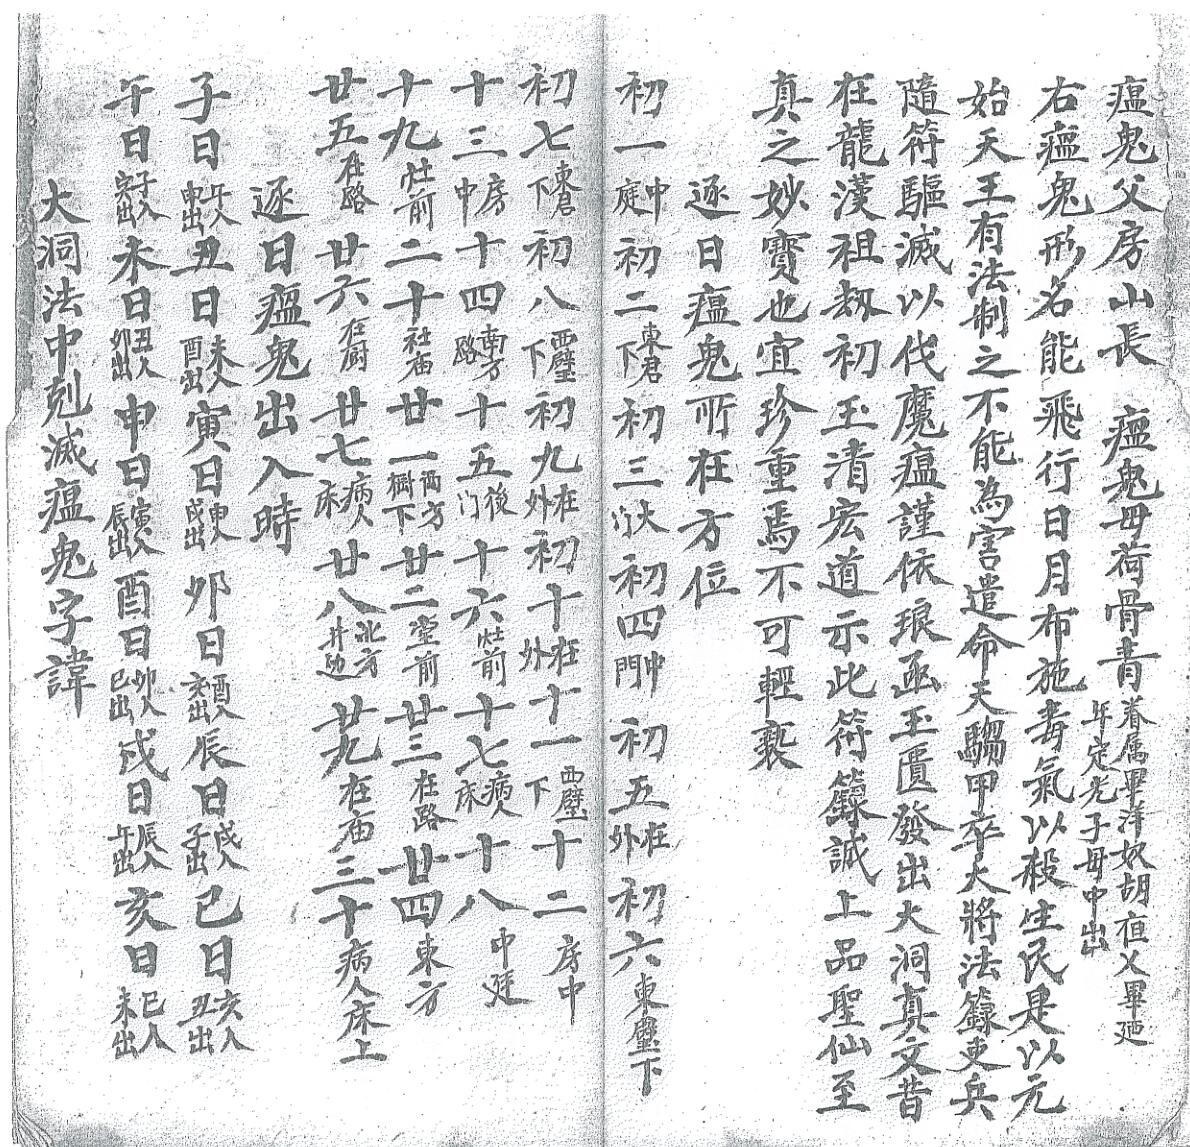 瘟鬼父房山長　瘟鬼母荷骨青眷属畢洋奴胡恒父畢廼年定光子母中出
右瘟鬼形名能飛行日月布施毒氣以殺生民是以元
始天王有法制之不能為害遣命天騶甲卒大將法籙吏兵
隨符驅滅以伐魔瘟謹依琅函玉匱發出大洞真文昔
在龍漢祖刼初玉清宏道示此符籙誠上品聖仙至
真之妙寶也宜珍重焉不可輕褻
逐日瘟鬼所在方位
初一中庭初二東君下初三大门初四中門初五在外初六東壁下
初七東倉下初八西壁下初九在外初十在外十一西壁下十二房中
十三房中十四南方路十五後门十六灶前十七病人床十八中廷
十九灶前二十社庙廿一西方樹下廿二堂前廿三在路廿四東方
廿五在路廿六在厨廿七病人床廿八北方井边廿九在庙三十病人床上
逐日瘟鬼出入時
子日午入申出丑日未入酉出寅日申入戌出卯日酉入亥出辰日戌入子出巳日亥入丑出
午日子入寅出未日丑入卯出申日寅入辰出酉日卯入巳出戌日辰入午出亥日巳入未出
大洞法中剋滅瘟鬼字諱